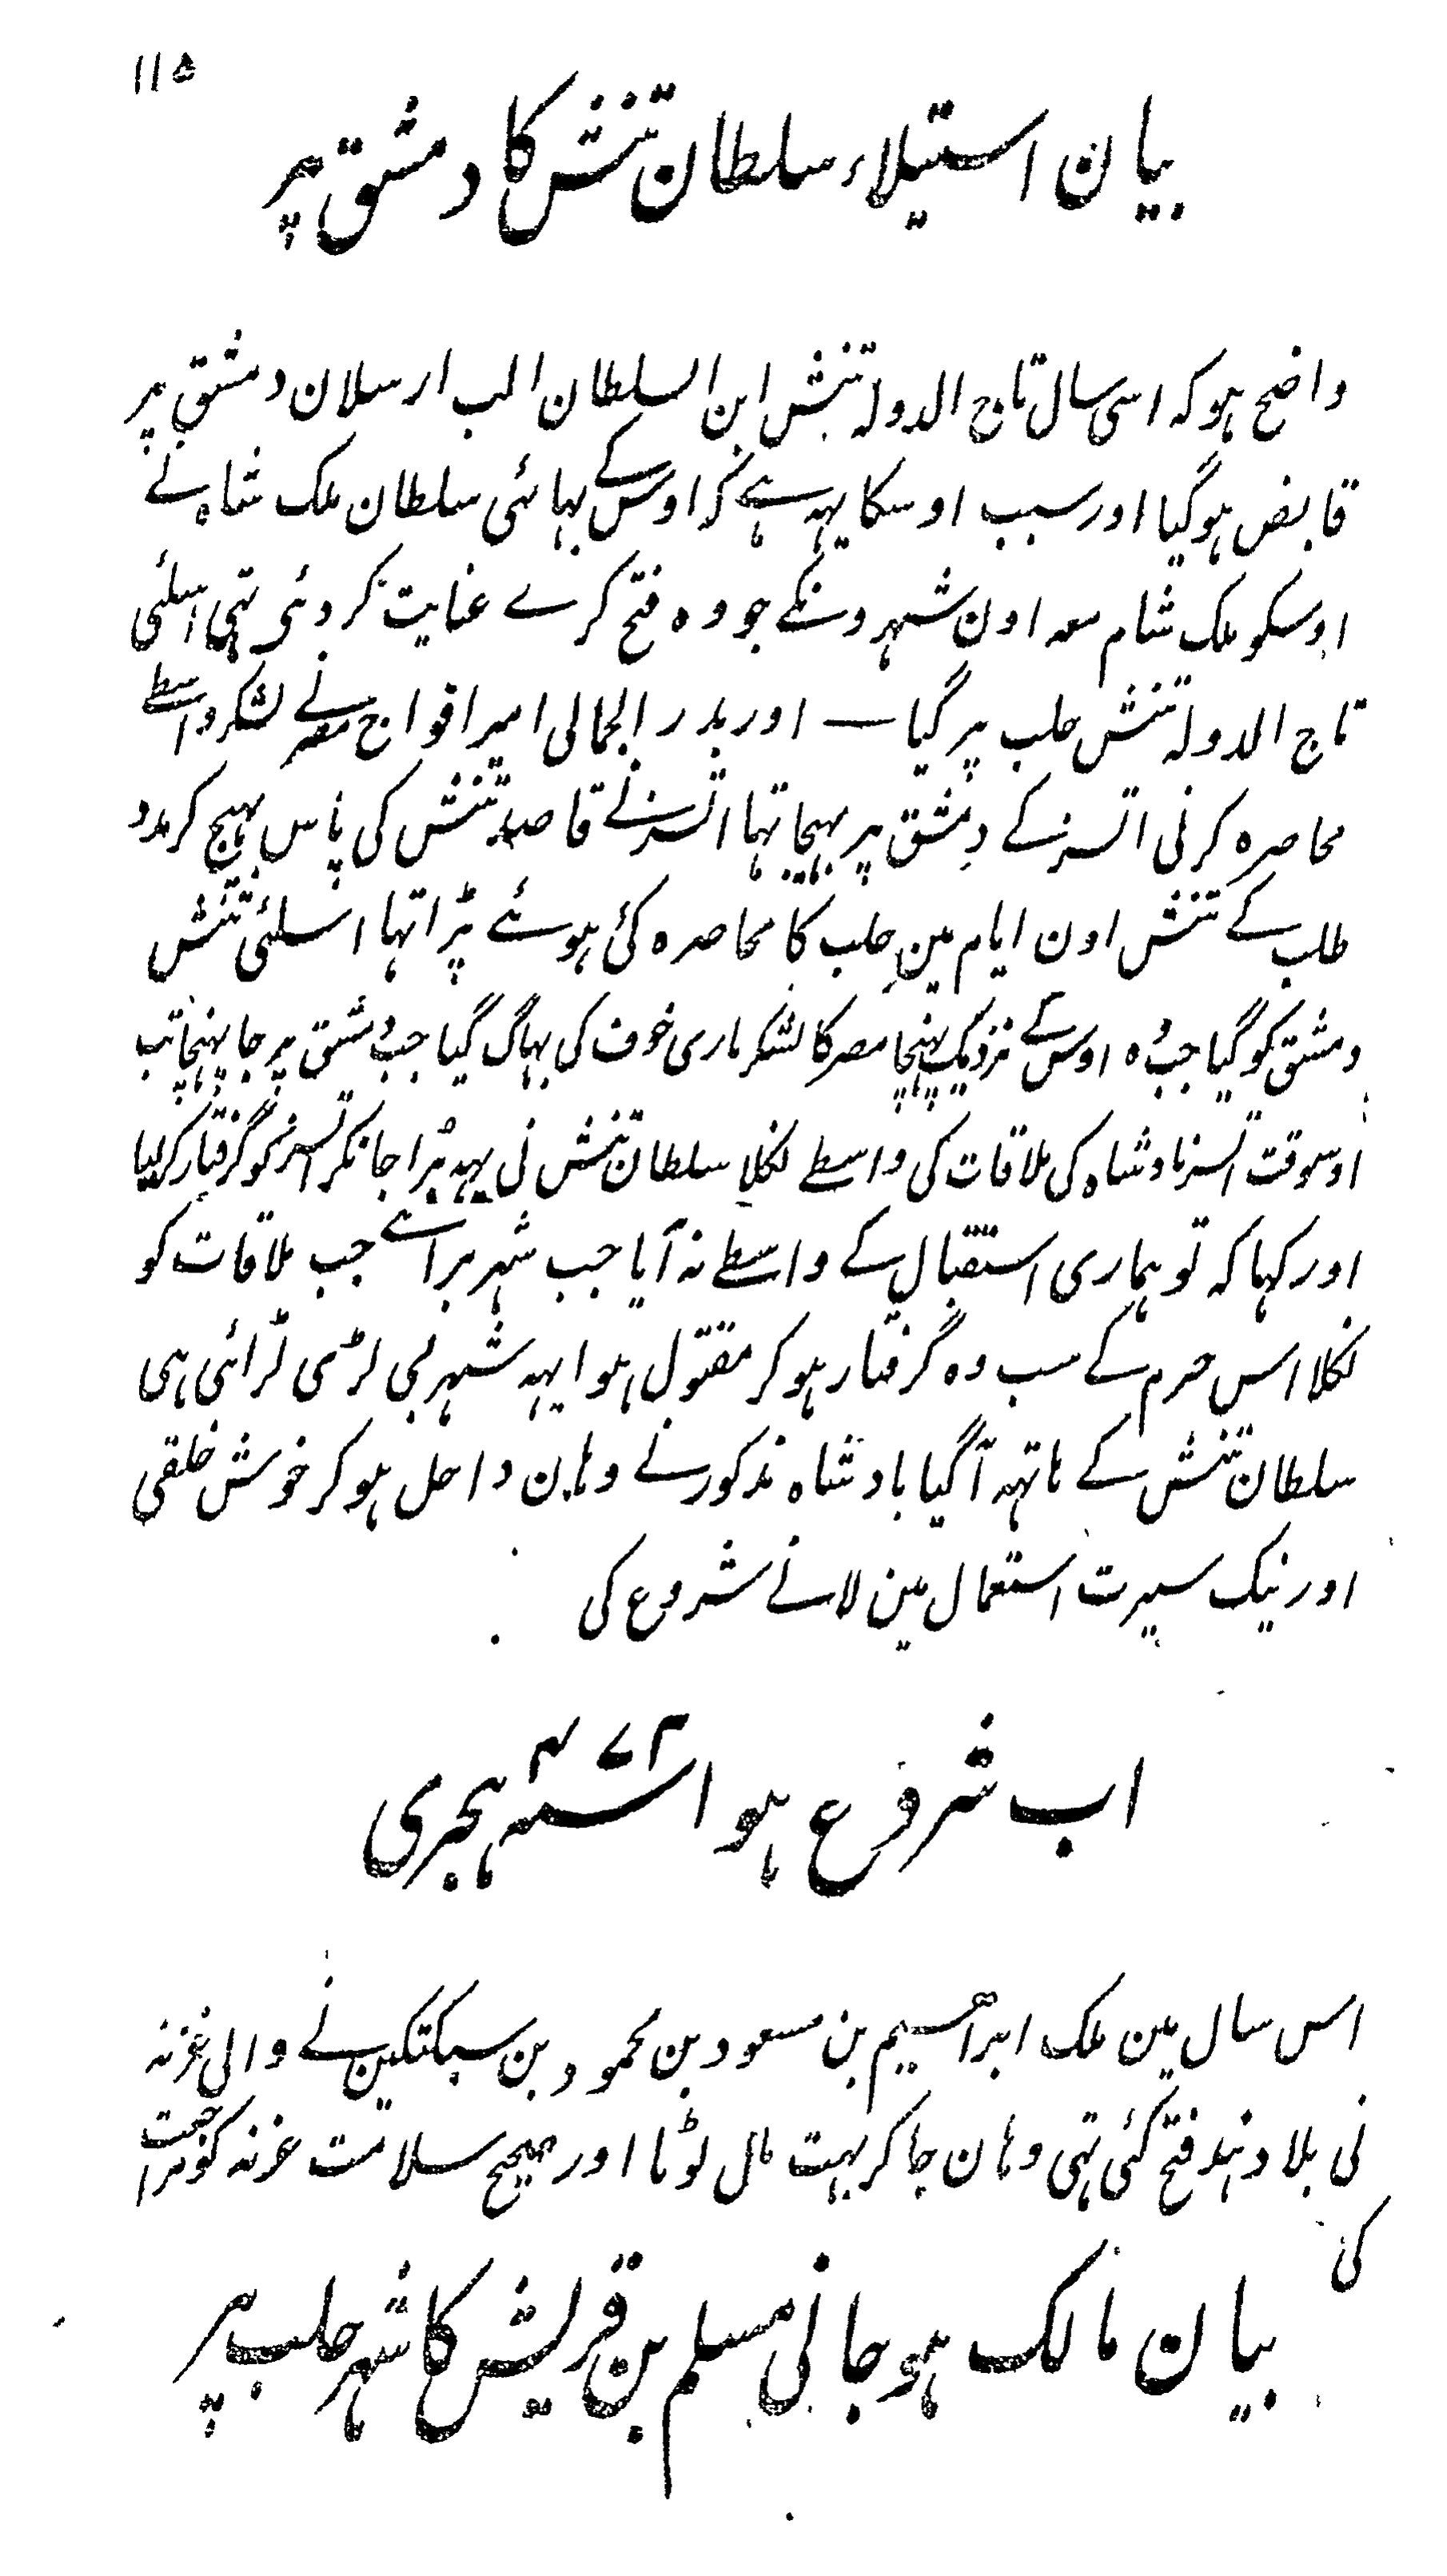 ۱۱۵
بیان استیلاء سلطان تتش کا دمشق پر
واضح ہو کہ اسی سال تاج الدولہ تتش ابن السلطان الب ارسلان دمشق پر
قابض ہو گیا اور سبب اوسکا یہہ ہے کہ اوس کے بہائی سلطان ملک شاہ نے
اوسکو ملک شام معہ اون شہرونکے جو وہ فتح کرے عنایت کر دئی تہی اسلئی
تاج الدولہ تتش حلب پر گیا — اور بدر الجمالی امیر افواج مصر نے لشکر واسطے
محاصرہ کرنی اتسز کے دمشق پر بہیجا تہا اتسز نے قاصد تتش کی پاس بہیج کر مدد
طلب کے تتش اون ایام مین حلب کا محاصرہ کئی ہوئے پڑا تہا اسلئی تتش
دمشق کو گیا جب وہ اوس کے نزدیک پہنچا مصر کا لشکر ماری خوف کی بہاگ گیا جب دمشق پر جا پہنچا تب
اوسوقت اتسز بادشاہ کی ملاقات کی واسطے نکلا سلطان تتش نی یہہ بڑا جانکر اتسز کو گرفتار کر لیا
اور کہا کہ تو ہماری استقبال کے واسطے نہ آیا جب شہر پر آے جب ملاقات کو
نکلا اس جرم کے سبب وہ گرفتار ہو کر مقتول ہوا یہہ شہر بی لڑی لڑائی ہی
سلطان تتش کے ہاتہہ آگیا بادشاہ مذکور نے وہان داخل ہو کر خوش خلقی
اور نیک سیرت استعمال مین لانے شروع کی
اب شروع ہوا سنہ ۴۷۲ ہجری
اس سال مین ملک ابراہیم بن مسعود بن محمود بن سبکتکین نے والی غزنہ
نی بلاد ہند فتح کئی تہی وہان جا کر بہت مال لوٹا اور صحیح سلامت غزنہ کو مراجعت
کی
بیان مالک ہو جانی مسلم بن قریش کا شہر حلب پر